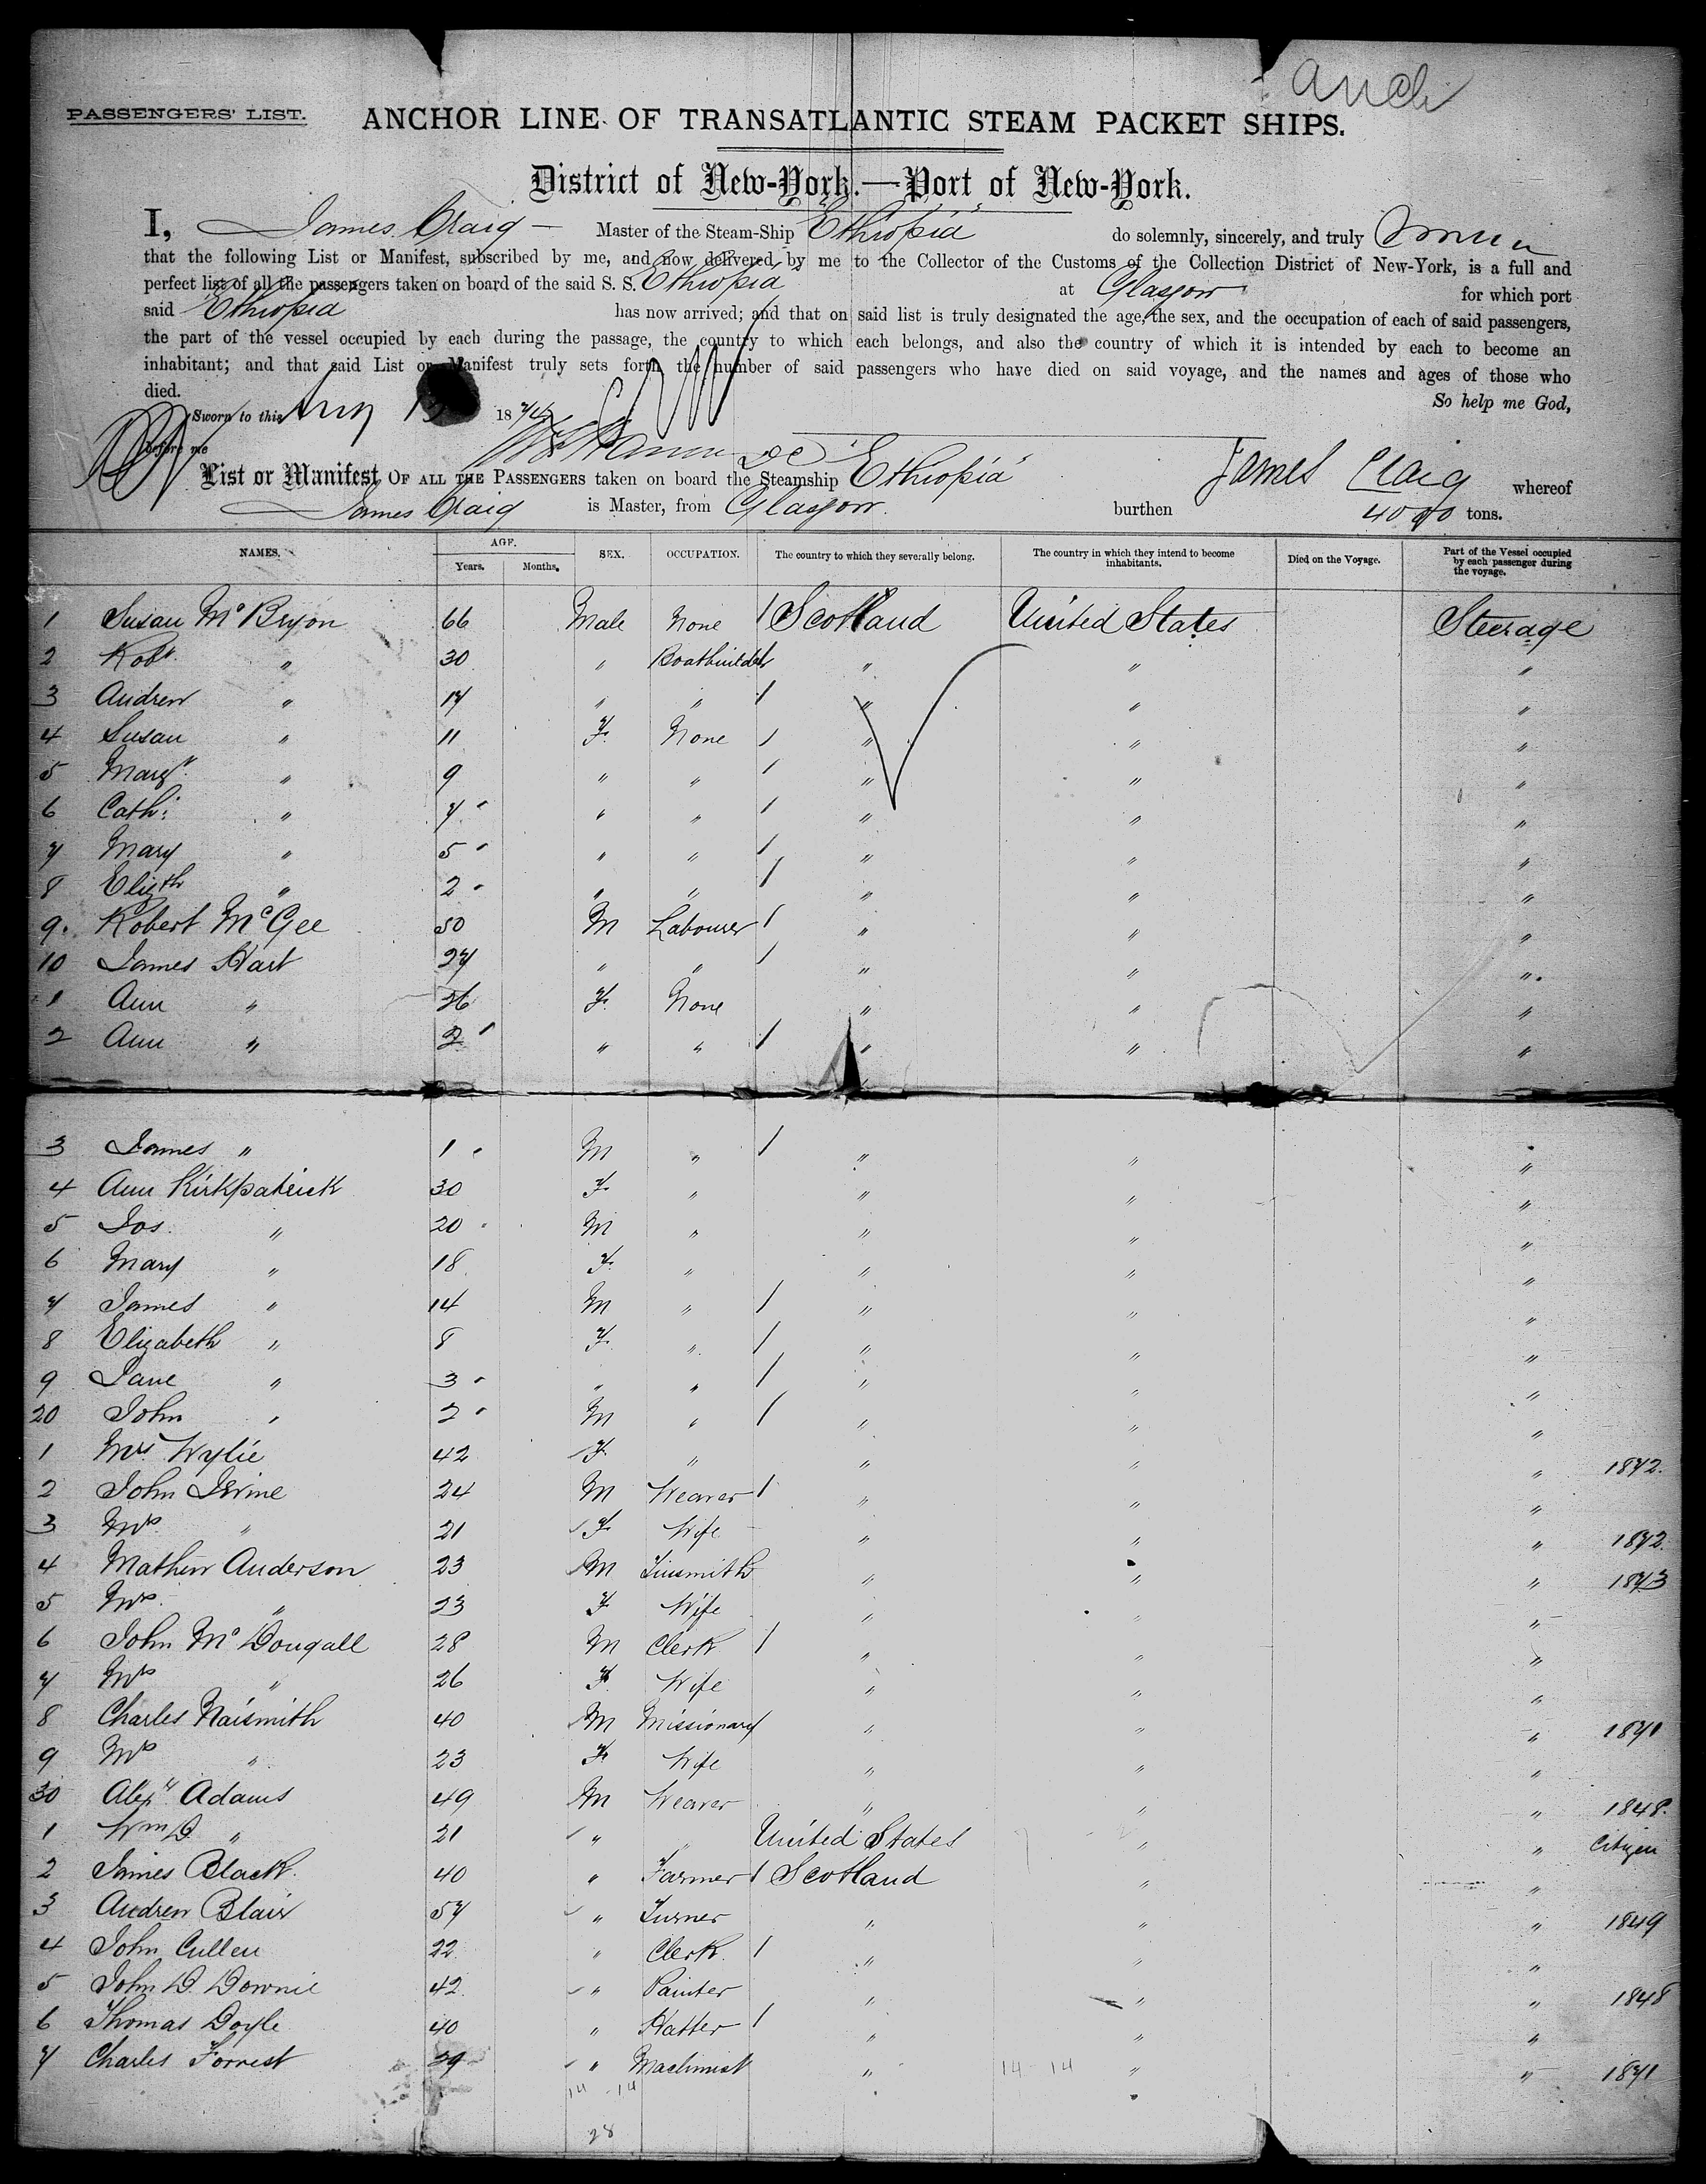 anch
PASSENGERS' LIST. ANCHOR LINE OF TRANSATLANTIC STEAM PACKET SHIPS.
District of New-York.—Port of New-York.
I, James Craig Master of the Steam-Ship "Ethiopia" do solemnly, sincerely, and truly
that the following List or Manifest, subscribed by me, and now delivered by me to the Collector of the Customs of the Collection District of New-York, is a full and
perfect list of all the passengers taken on board of the said S. S. "Ethiopia" at Glasgow for which port
said "Ethiopia" has now arrived; and that on said list is truly designated the age, the sex, and the occupation of each of said passengers,
the part of the vessel occupied by each during the passage, the country to which each belongs, and also the country of which it is intended by each to become an
inhabitant; and that said List or Manifest truly sets forth the number of said passengers who have died on said voyage, and the names and ages of those who
died. So help me God,
Sworn to this 1874
before me
List or Manifest OF ALL THE PASSENGERS taken on board the Steamship "Ethiopia" James Craig whereof
James Craig is Master, from Glasgow. burthen 4000 tons.
NAMES. AGE. Years. Months. SEX. OCCUPATION. The country to which they severally belong. The country in which they intend to become inhabitants. Died on the Voyage. Part of the Vessel occupied by each passenger during the voyage.
1 Susan McBryon 66 Male None / Scotland United States Steerage
2 Robt. " 30 " Boatbuilder / " " "
3 Andrew " 17 " " / " " "
4 Susan " 11 F. None / " " "
5 Margt. " 9 " " / " " "
6 Cath: " 7 " " / " " "
7 Mary " 5 " " / " " "
8 Elizth " 2 " " / " " "
9. Robert McGee 50 M Labourer / " " "
10 James Hart 27 " " / " " "
1 Ann " 26 F. None " " "
2 Ann " 2 " " / " " "
3 James " 1 M " / " " "
4 Ann Kirkpatrick 30 F. " " " "
5 Jos. " 20 M " " " "
6 Mary " 18 F. " " " "
7 James " 14 M " / " " "
8 Elizabeth " 8 F. " / " " "
9 Jane " 3 " " / " " "
20 John " 2 M " / " " "
1 Mrs. Wylie 42 F. " " " " 1872.
2 John Irvine 24 M Weaver / " " "
3 Mrs " 21 F. Wife " " " 1872.
4 Mathew Anderson 23 M Tinsmith " " " 1873
5 Mrs. " 23 F Wife " " "
6 John McDougall 28 M Clerk / " " "
7 Mrs " 26 F. Wife " " "
8 Charles Naismith 40 M Missionary " " " 1871
9 Mrs " 23 F. Wife " " "
30 Alexr Adams 49 M Weaver " " " 1848.
1 Wm D. " 21 " " United States " " Citizen
2 James Black. 40 " Farmer / Scotland " "
3 Andrew Blair 57 " Turner " " " 1849
4 John Cullen 22 " Clerk. / " " "
5 John D. Downie 42 " Painter " " " 1848
6 Thomas Doyle 40 " Hatter / " " "
7 Charles Forrest 29 " Machinist " " " 1871
14 14 14 14
28